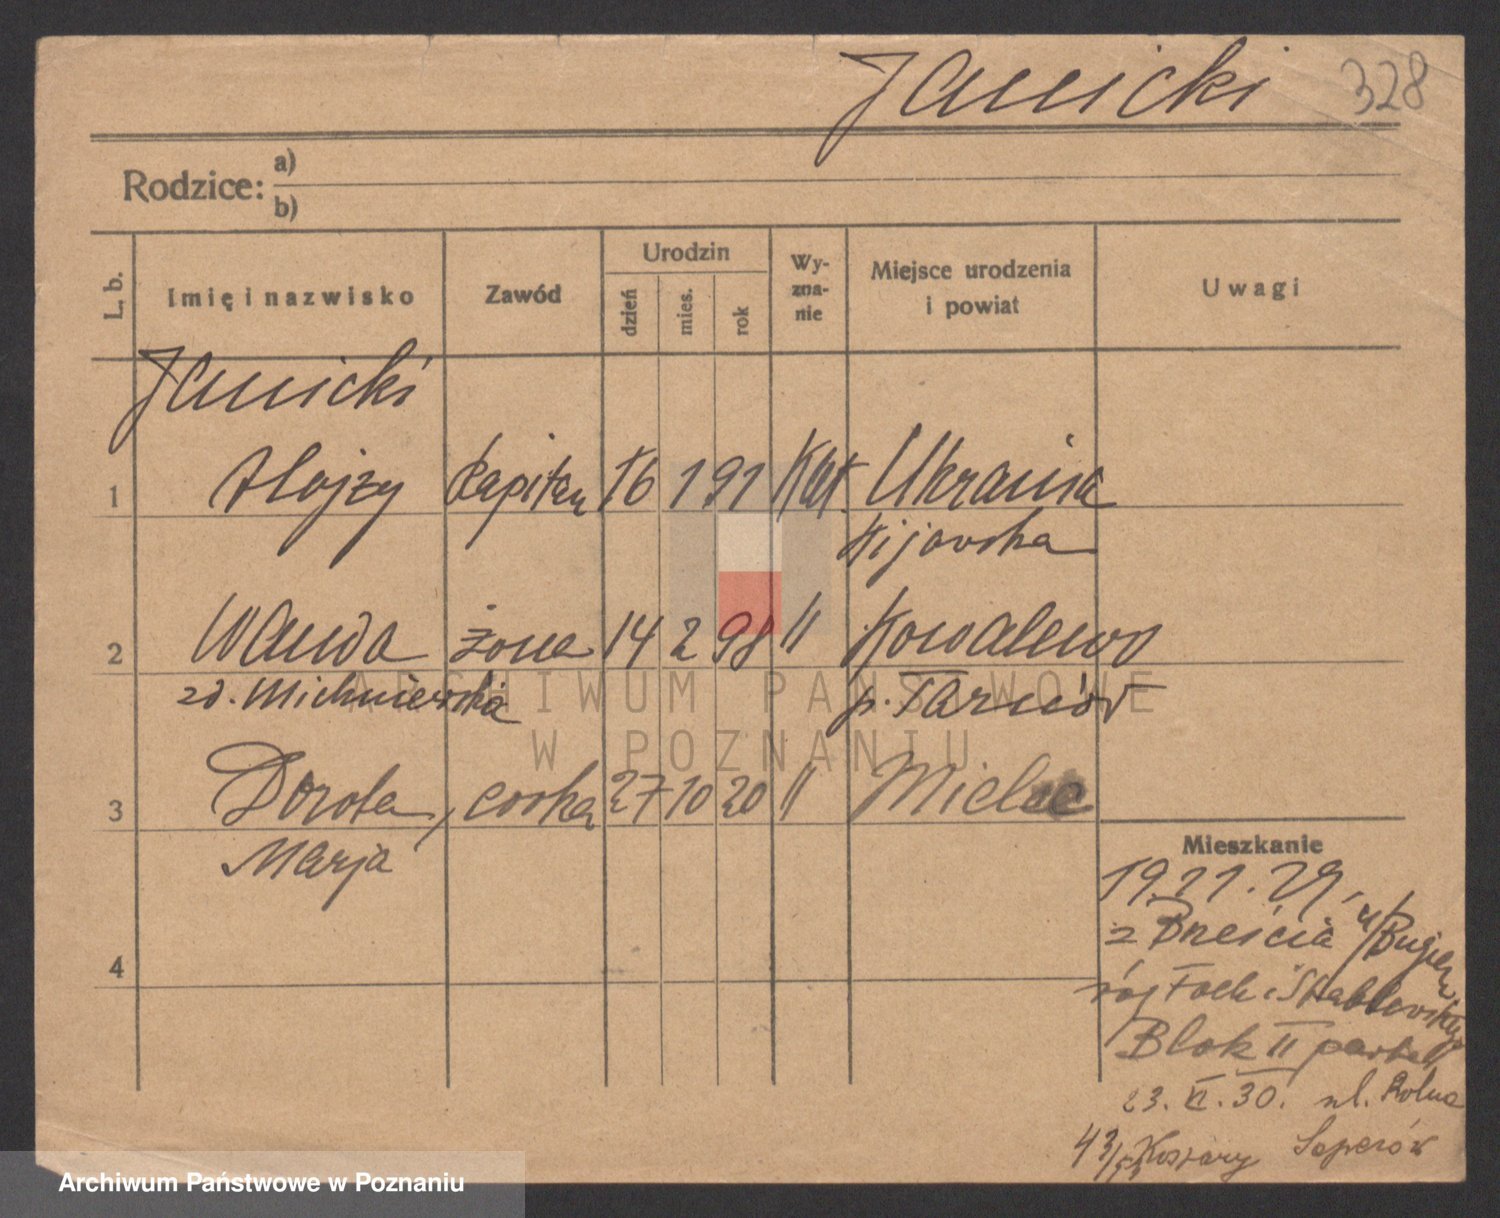 Janicki 328
Rodzice: a)
b)
L. b. Imię i nazwisko Zawód Urodzin dzień mies. rok Wy-zna-nie Miejsce urodzenia i powiat Uwagi
Janicki
1 Alojzy kapitan 16 1 91 Kat. Ukraina
Kijowska
2 Wanda żona 14 2 98 " Kowalewo
zd. Michniewska p.
3 Dorota, córka 27 10 20 " Mielec
Marja
4
Mieszkanie
19.11.29.
z Brześcia n/Bugiem
róg Foch i
Blok II parter
23. XI. 30. ul. Rolna
43/53 Koszary Saperów
ARCHIWUM PAŃSTWOWE
W POZNANIU
Archiwum Państwowe w Poznaniu